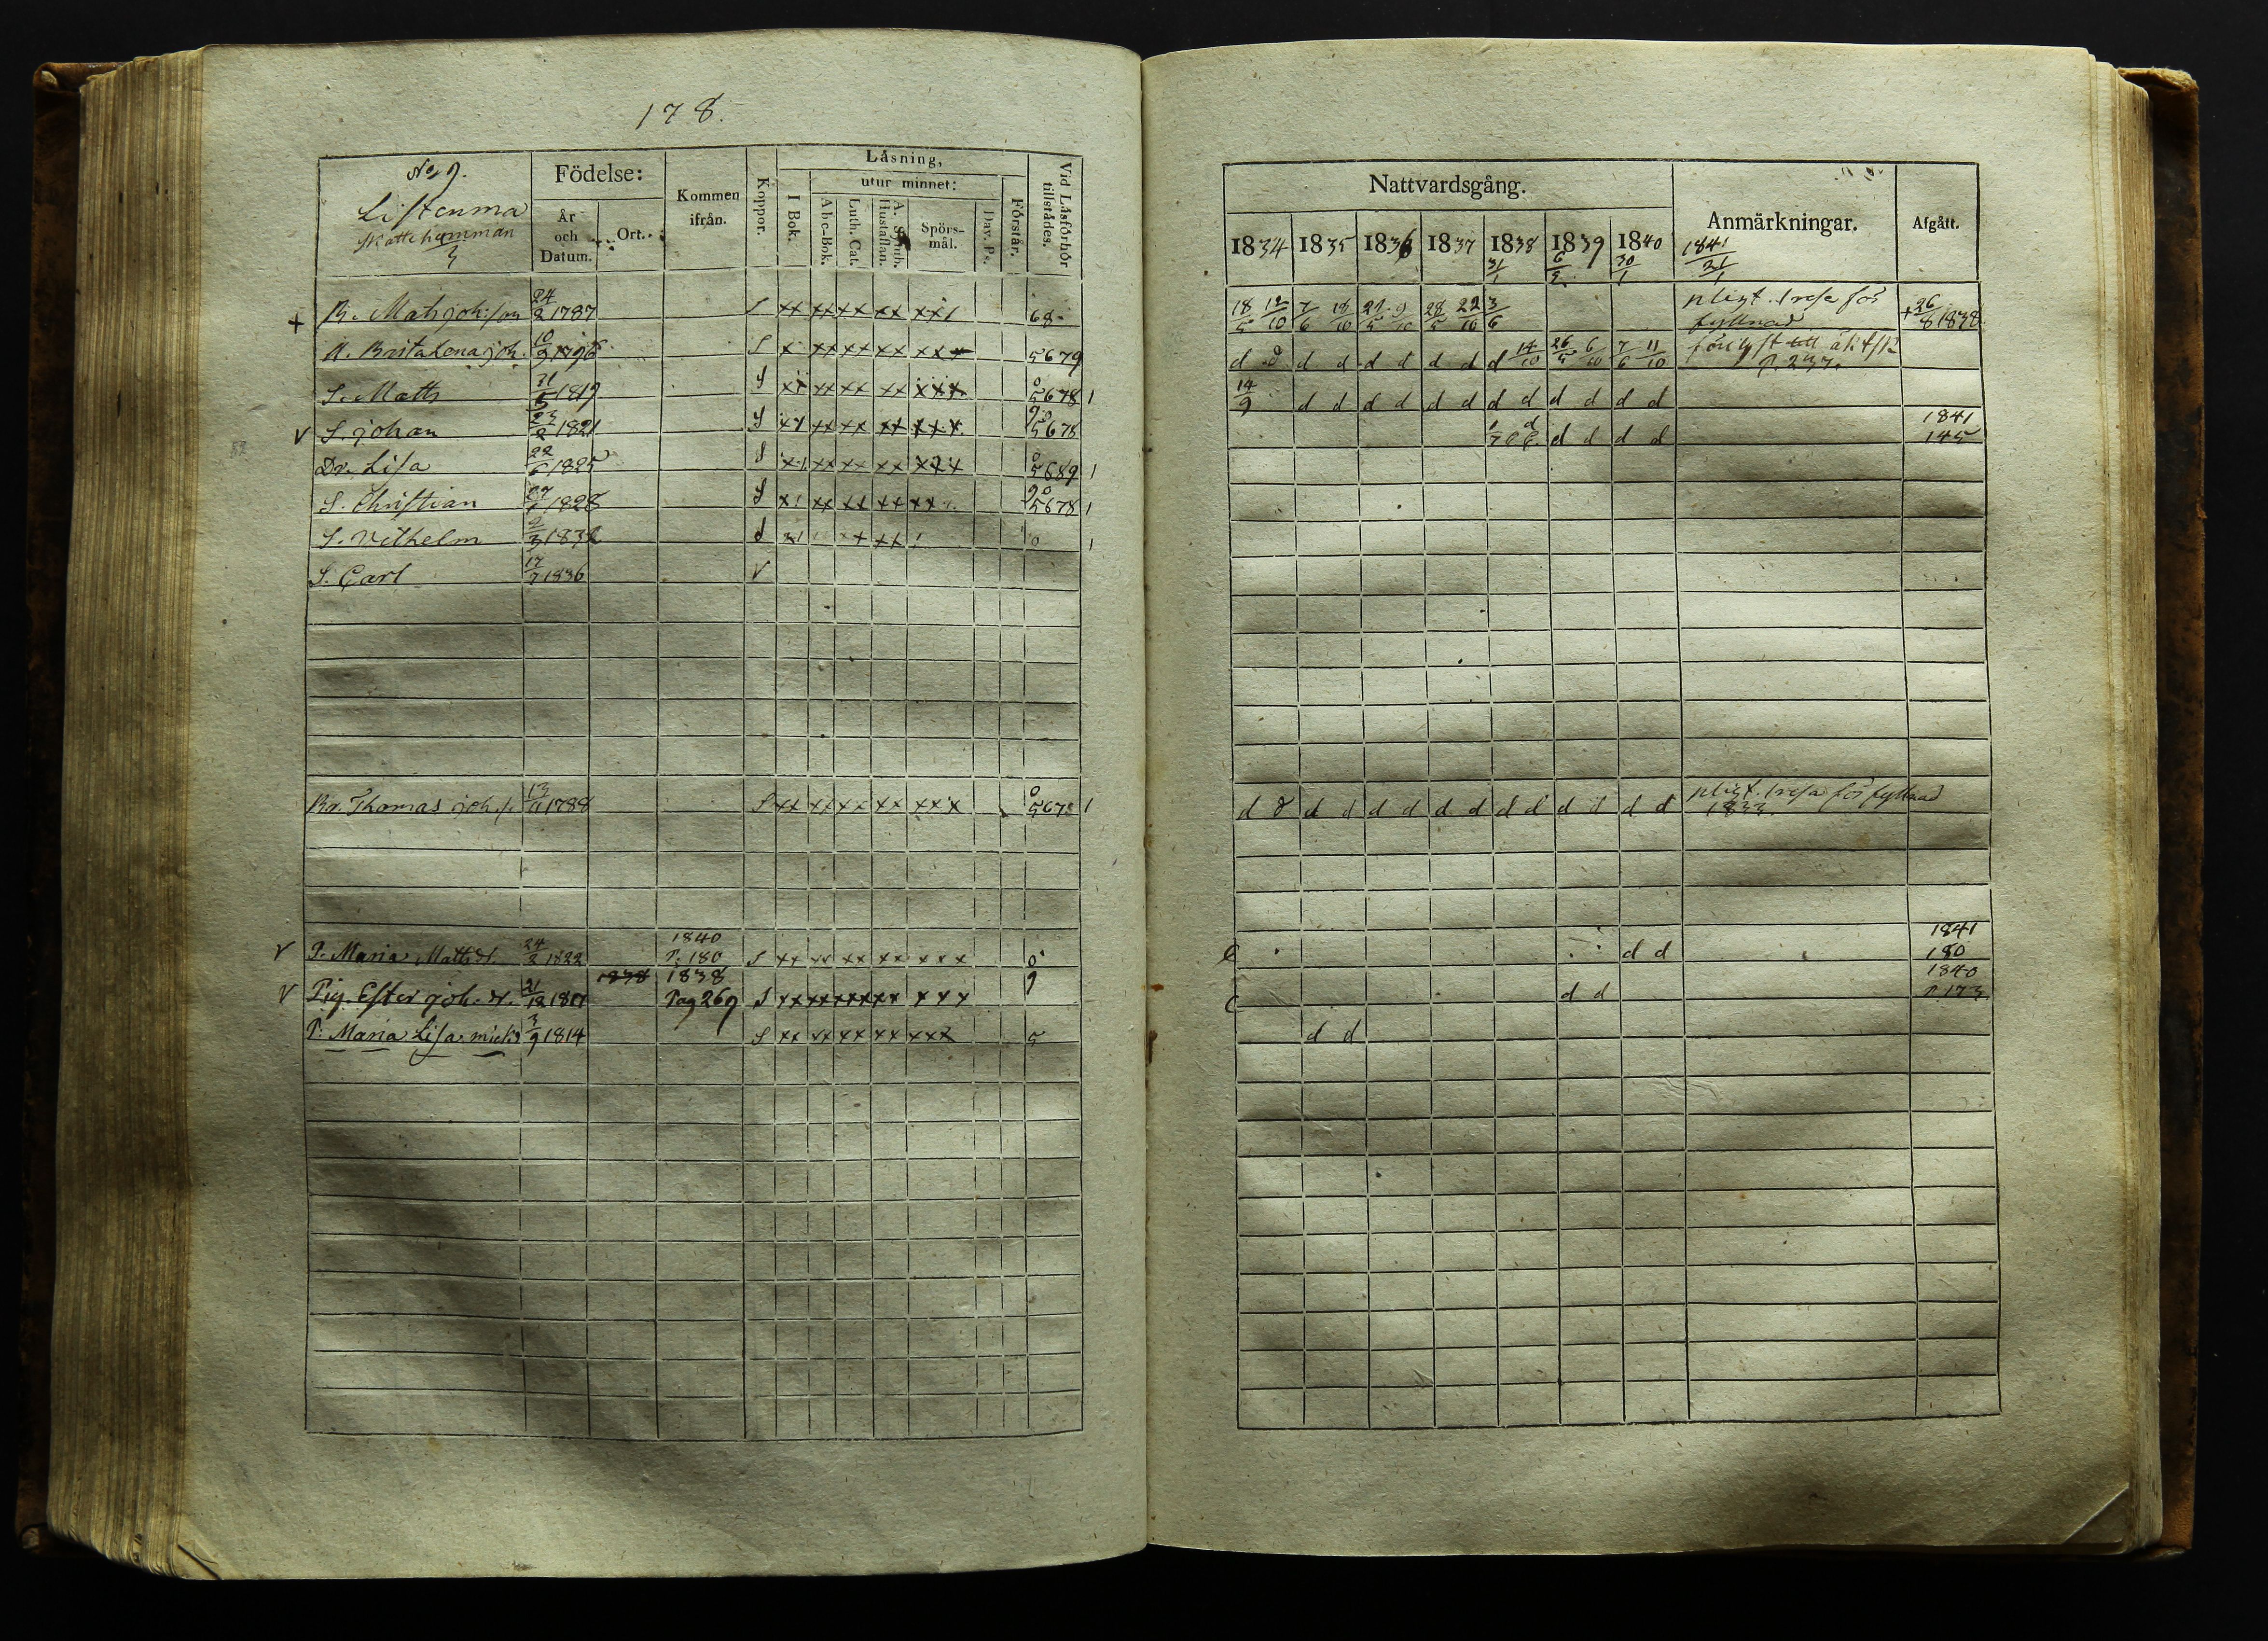 178.
No 9.
Listenma
Skattehemman
Födelse:
År
och
Datum.
Ort.
Kommen
ifrån.
Koppor.
Läsning,
I Bok.
utur minnet:
Abc-Bok.
Luth. Cat.
Hustaflan.
Spörs-
mål.
Dav. Ps.
Förstår.
Vid Läsförhör
tillstädes.
+ B. Mats joh:son 24/2 1787 S xx xx xx xx 68
H. Brita Lena joh. 10/3 1796 S x xx xx xx xxx 5679
S. Matts 21/5 1819 S xx xx xx xxx 5678 1
V S. johan 23/2 1821 S xx xx xx xx xxx 5678
Dr. Lisa 22/6 1825 S xx xx xx xxx 5689 1
S. Christian 27/1 1828 S xx xx xx 5678 1
S. Vilhelm 1832 xx xx 0 1
S. Carl 17/7 1836 V
Br. Thomas joh.s. 13/11 1788 S xx xx xx xx xxx 5678 1
V P. Maria Matts d. 24/2 1822 1840 P. 180 S xx xx xx xx xxx 0
V Pig. Ester joh. d. 21/12 1838 1838 Pag 269 S xx xx xx xx xxx 9
P. Maria Lisa mich. d 3/9 1814 S xx xx xx xx xxx 5
Nattvardsgång.
1834 1835 1836 1837 1838 1839 1840
31/1 30/1
Anmärkningar.
1841
31/1
Afgått.
18/5 12/10 7/6 18/10 28/5 22/10 3/6 pligt. resa för
fyllnad + 26/8 1838.
d d d d d d d d d 14/10 26/5 6/10 7/6 11/10
P. 237.
14/9 d d d d d d d d d d d d
d d d d 1841
145
d d d d d d d d d d d d d d pligt. resa för fyllnad
1833.
d d 1841
180
d d 1840
P. 173
d d